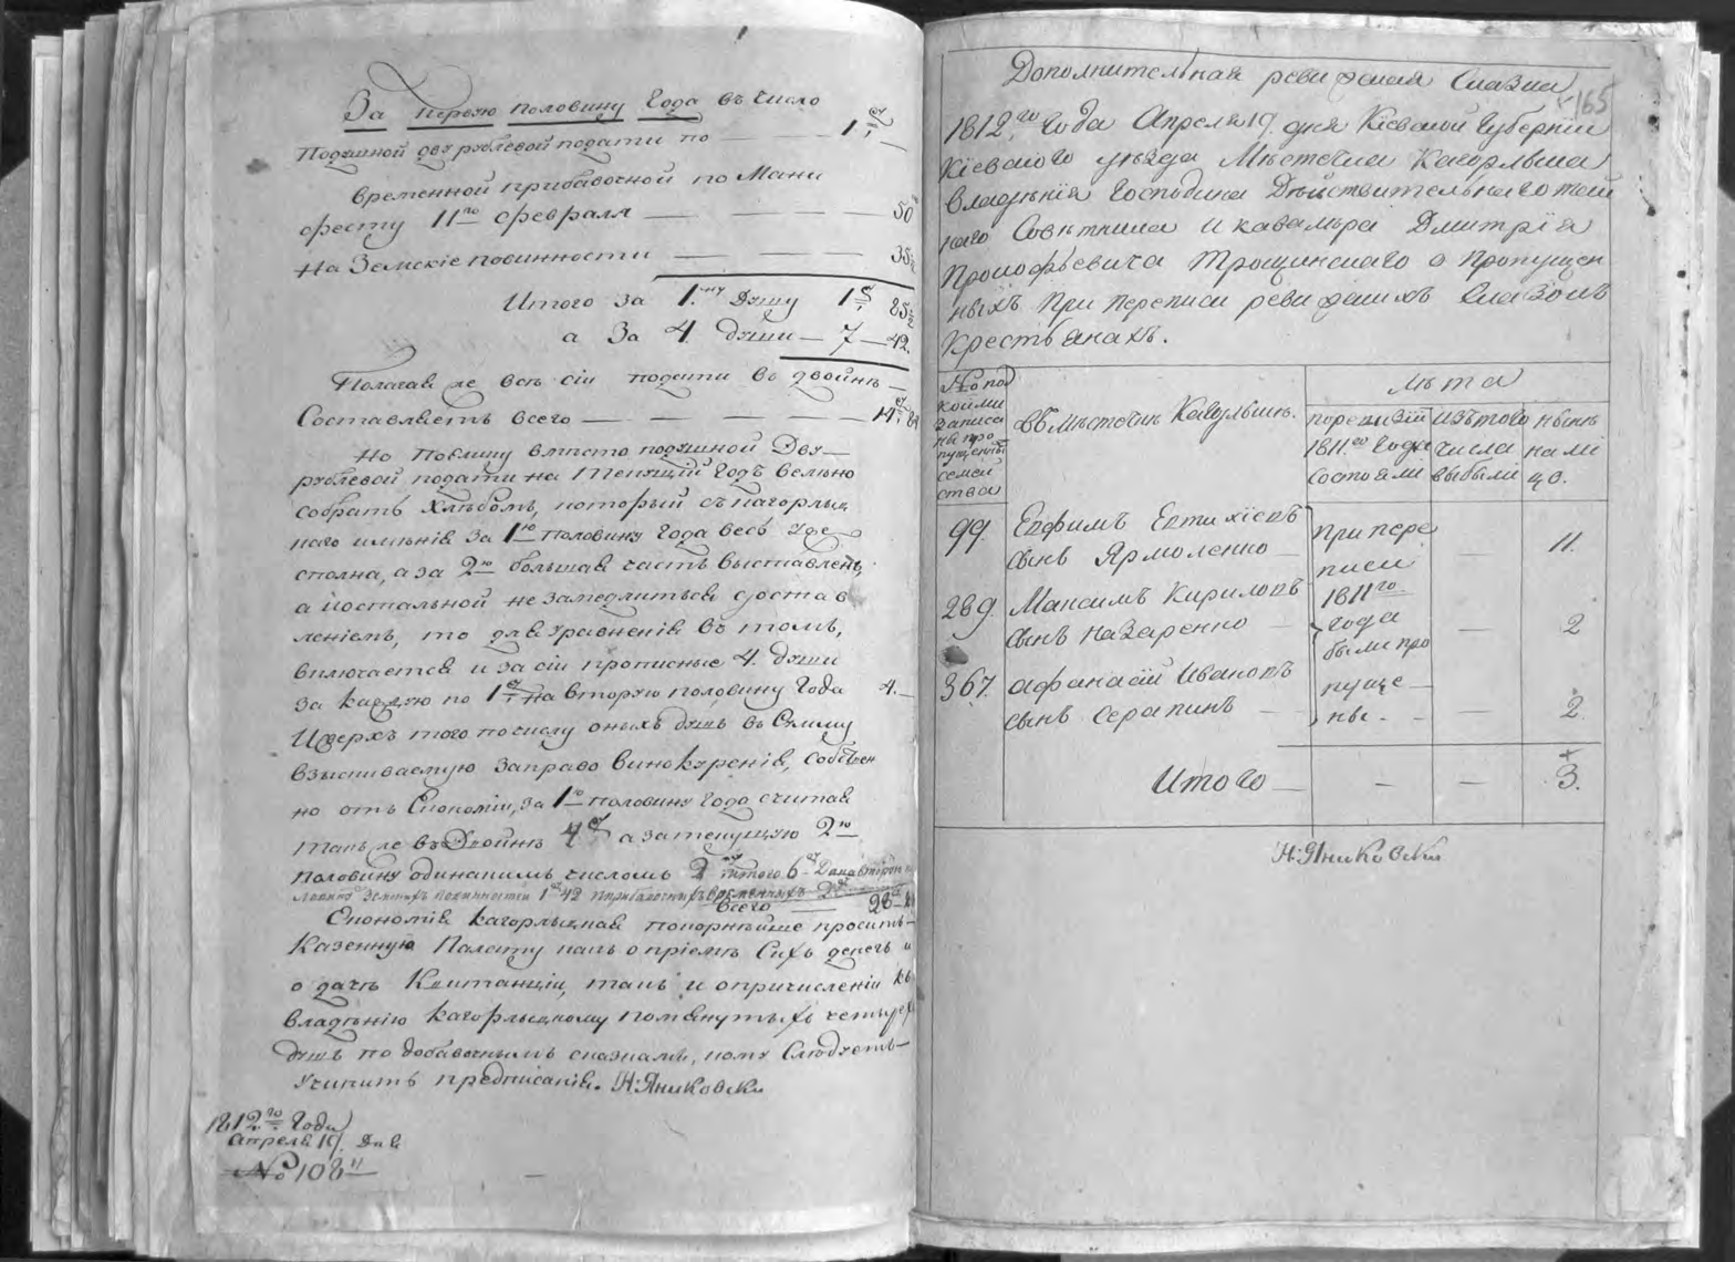 За первую половину года въ число
Подушной двухрублевой подати по — — 1.
временной прибавочной по Мани
фесту 11го февраля — — — — 50
на Земскіе повинности — — — 35
Итого за 1.ну душу 1 85
а За 4 души — 7 — 42.
Полагая же всѣ сіи подати въ двойнѣ —
Составляетъ всего — — — — 14
Но Поелику вмѣсто подушной Двух
рублевой подати на Текущій годъ велѣно
собрать Хлѣбомъ, который съ кагорлыц
каго имѣнія За 1ю половину года весь уже
сполна, а за 2ю большая часть выставлены,
а Іостальной незамедлиться достав
леніемъ, то для уравненія въ томъ,
включается и за сіи прописные 4. души
за каждую по 1 на вторую половину года 4.—
Изверхъ того по числу оныхъ душъ въ Сумму
взыскиваемую заправо винокуренія, собствен
но отъ Економіи, за 1ю половину года считая
такъ же въ Двойнѣ 4 а за текущую 2ю
половину одинакимъ числомъ 2 итого 6
Всего — 28
Економія кагорлыцкая покорнѣйше проситъ
Казенную Палату какъ о пріемѣ Сихъ денегъ и
о дачѣ Квитанціи, такъ и опричисленіи къ
владѣнію кагорлыцкому помянутыхъ четырехъ
душъ по добавочнымъ сказкамъ, кому Слюдуетъ
учинить предписаніе. Н: Яниковски
1812го Года
апреля 19. Дня
№ 108
Дополнительная ревижская Сказка
165
1812го года Апреля 19. дня Кіевской губерніи
Кіевского уѣзда Мѣстечка Кагорлыка
владѣнія Господина Дѣйствительного тай
наго Совѣтника и кавалѣра Дмитрія
Прокофьевича Трощинскаго о пропущен
ныхъ при переписи ревижскихъ сказокъ
крестьянахъ.
№ по
коими
записа
ны про
пущенны
семей
ства
Въ Мѣстечкѣ Кагорлыкѣ.
Лѣта
поревизіи
1811.го года
состояли
изътого
числа
выбыли
нынѣ
на лі
цо.
99. Евфимъ Евтихіевъ
сынъ Ярмоленко — — 11.
289. Максимъ Кириловъ
сынъ Назаренко — — 2
367. Афанасій Ивановъ
сынъ Серапинъ — — 2
При пере
писи
1811го
года
были про
пуще—
ны. -
Итого — — — 3.
Н: Яниковски